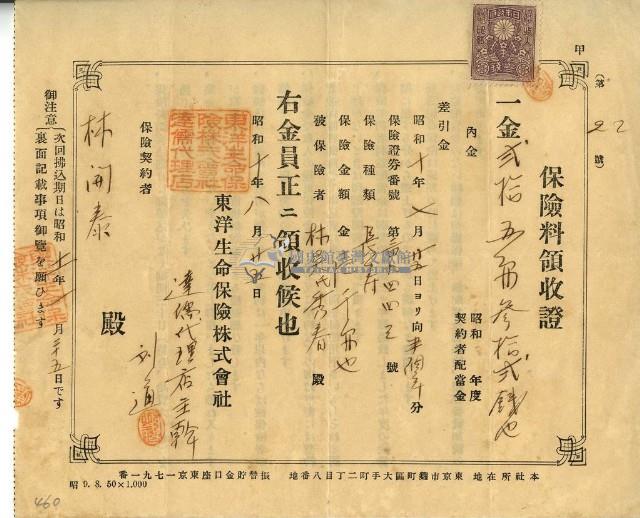 甲
(第 22 號)
保險料領收證
一金貳拾五円参拾貳錢也
內金 昭和 年度契約者配當金
差引金
昭和十年七月廿五日ヨリ向半個年分
保險證券番號 第 四四 號
保險種類 長壽
保險金額 金 千円也
被保險者 林 氏秀春 殿
右金員正ニ領收候也
昭和十年八月廿五日
東洋生命保險株式會社
達儒代理店主幹
東洋生命保險株式會社達儒代理店
保險契約者
林開泰 殿
御注意 (次回拂込期日は昭和十一年 月二十五日です
裏面記載事項御覽を願ひます
本社所在地 東京市麴町區大手町二丁目八番地 振替貯金口座東京一七九一番
昭 9. 8. 50×1,000
460
國史館臺灣文獻館
TAIWAN HISTORICA